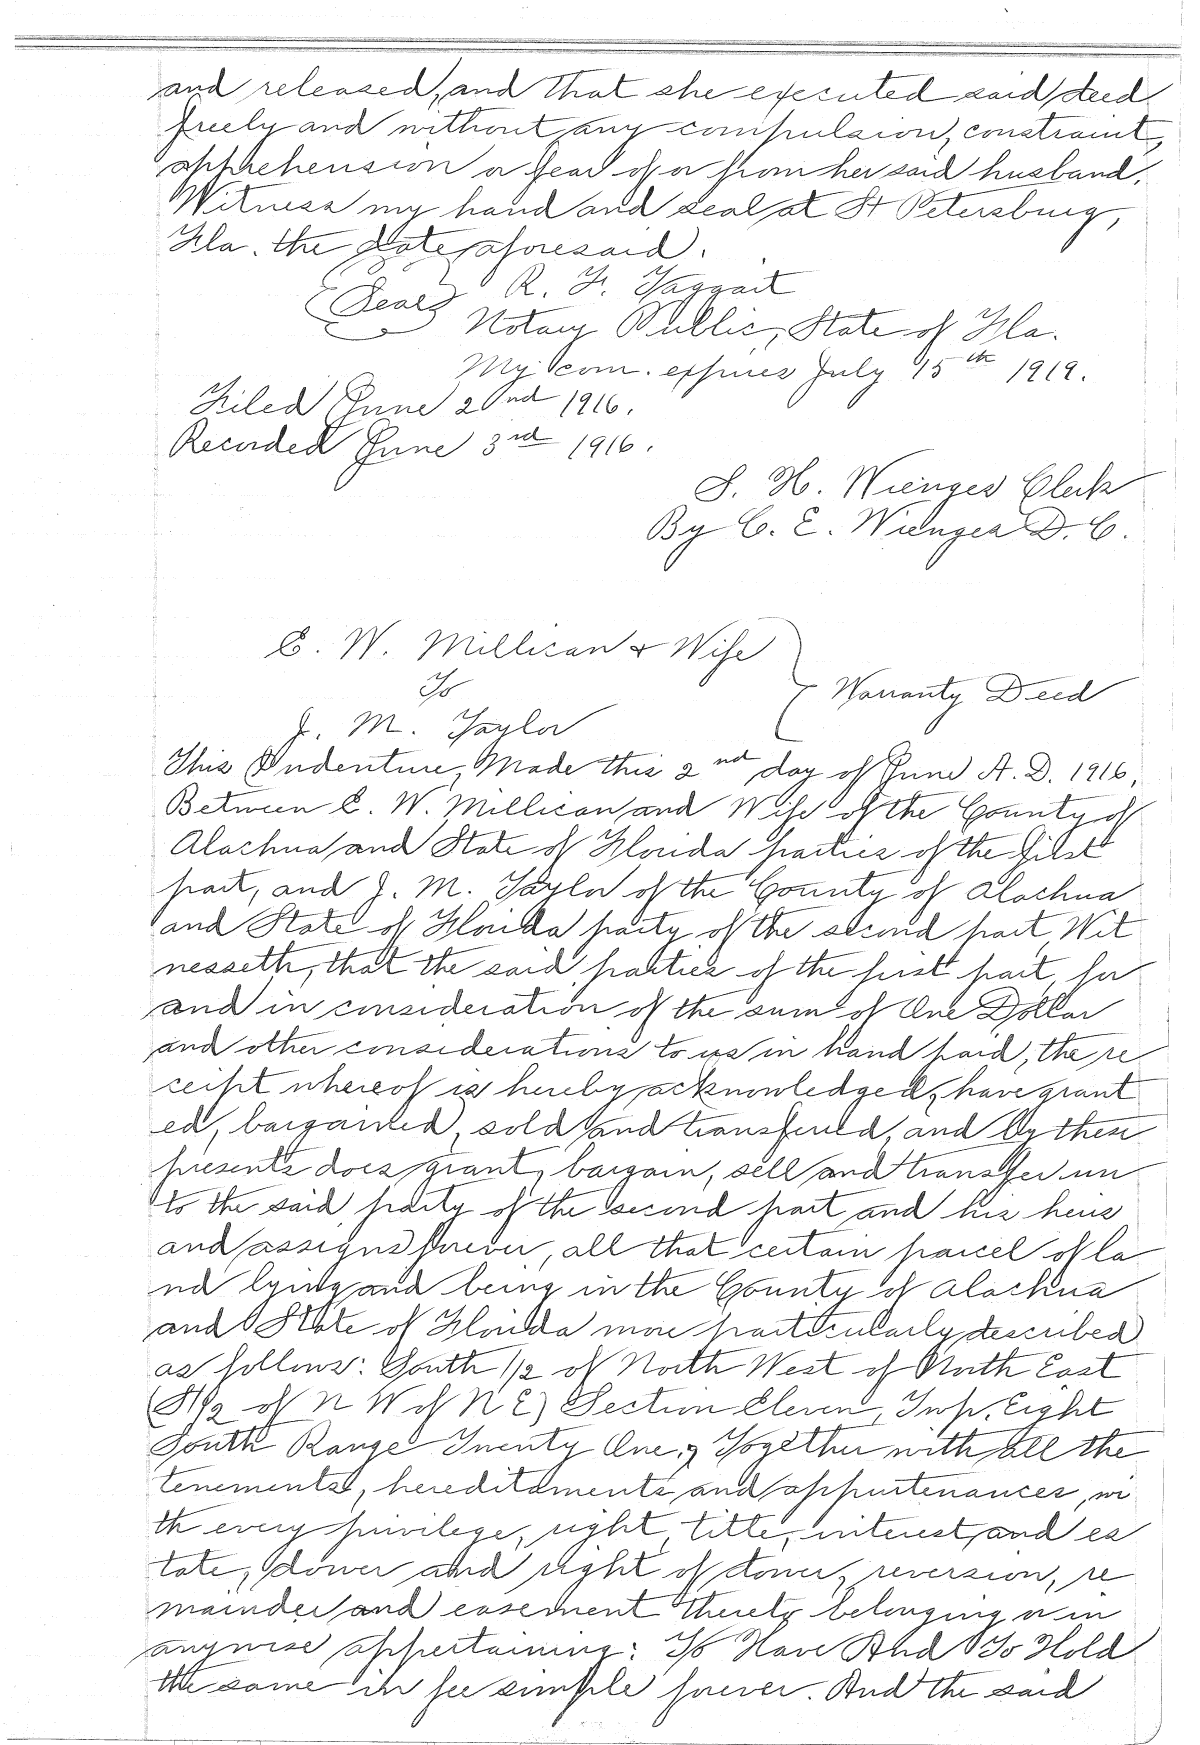 and released, and that she executed said deed
freely and without any compulsion, constraint,
apprehension or fear of or from her said husband.
Witness my hand and seal at St Petersburg,
Fla. the date aforesaid.
(Seal) R. F. Taggart
Notary Public, State of Fla.
My com. expires July 15th 1919.
Filed June 2nd 1916.
Recorded June 3rd 1916.
S. H. Wienges Clerk
By C. E. Wienges D. C.
E. W. Millican & Wife
To
Warranty Deed
J. M. Taylor
This Indenture, Made this 2nd day of June A. D. 1916,
Between E. W. Millican and Wife of the County of
Alachua and State of Florida parties of the first
part, and J. M. Taylor of the County of Alachua
and State of Florida party of the second part, Wit
nesseth, that the said parties of the first part, for
and in consideration of the sum of One Dollar
and other considerations to us in hand paid, the re
ceipt whereof is hereby acknowledged, have grant
ed, bargained, sold and transferred, and by these
presents does grant, bargain, sell and transfer un
to the said party of the second part and his heirs
and assigns forever, all that certain parcel of la
nd lying and being in the County of Alachua
and State of Florida more particularly described
as follows: South 1/2 of North West of North East
(S1/2 of N W of N E) Section Eleven, Twp. Eight
South Range Twenty One, Together with all the
tenements, hereditaments and appurtenances, wi
th every privilege, right, title, interest, and es
tate, dower and right of dower, reversion, re
mainder and easement thereto belonging or in
anywise appertaining: To Have And To Hold
the same in fee simple forever. And the said